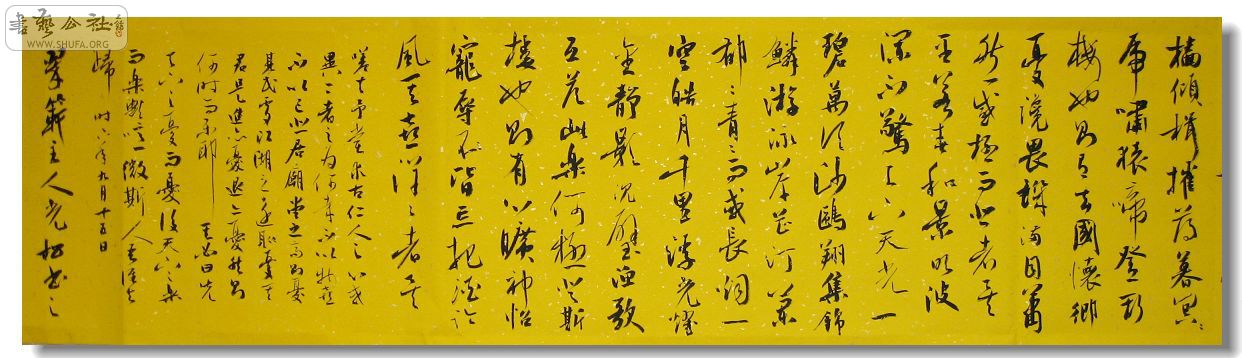 書藝公社
WWW.SHUFA.ORG
檣傾楫摧薄暮冥冥
虎嘯猿啼登斯
樓也則有去國懷鄉
憂讒畏譏滿目蕭
然感極而悲者矣
至若春和景明波
瀾不驚上下天光一
碧萬頃沙鷗翔集錦
鱗游泳岸芷汀蘭
郁郁青青而或長烟一
空皓月千里浮光耀
金靜影沉璧漁歌
互答此樂何極登斯
樓也則有心曠神怡
寵辱皆忘把酒臨
風其喜洋洋者矣
嗟夫予嘗求古仁人之心或
異二者之為何哉不以物喜
不以己悲居廟堂之高則憂
其民處江湖之遠則憂其
君是進亦憂退亦憂然則
何時而樂耶其必曰先
天下之憂而憂後天下之樂
而樂歟噫微斯人吾誰與
歸 時六年九月十五日
主人光書之